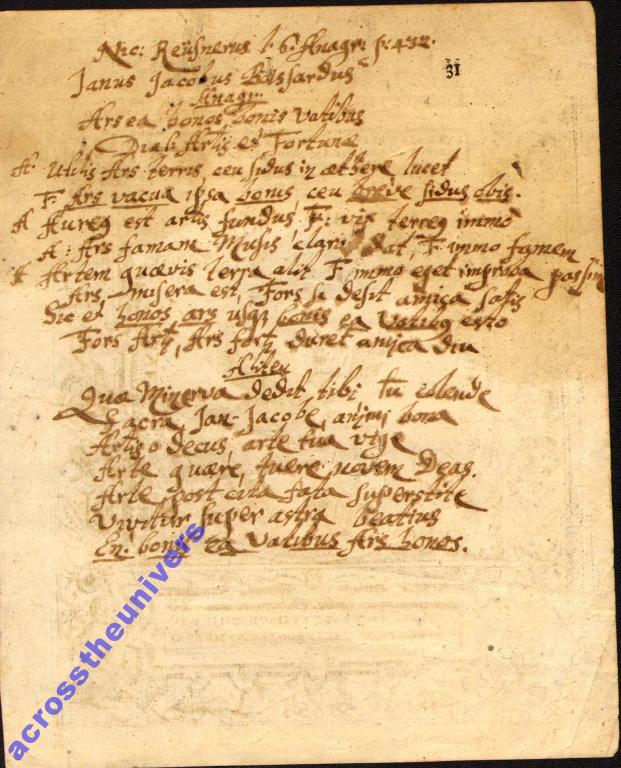 Nic: Reüsnerus l. 6. Anagr: f: 432.
31
Janus Jacobus Boissardus
Anagr:
Ars ea bonos bonis vatibus
Dial: Artis et Fortunæ
A. Utilis Ars terris, ceu sidus in æthere lucet
F. Ars vacua ipsa bonis, ceu breve sidus obis.
A Aureq est artis fundus, F: vix terreq immo
A: Ars famam Musis claram dat, F. immo famem
A Artem quævis terra alit F. immo eget improba passim
Ars misera est, Fors si desit amica satis
Sic et honos ars usq bonis ea vatibq esto
Fors Arti, Ars forti duret amica diu
Aliter
Quæ Minerva dedit, tibi tu colende
Sacra, Jan-Jacobe, animi bona
Artis o decus, arte tua vige
Arte quære, tuere novem Deas.
Arte post cita fata superstite
Vivitur super astra beatius
En: bonis ea vatibus Ars honos.
acrosstheunivers